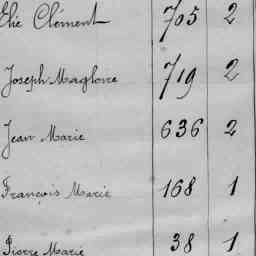 Elie Clément 705 2
Joseph Magloire 719 2
Jean Marie 636 2
François Marie 168 1
Pierre Marie 38 1